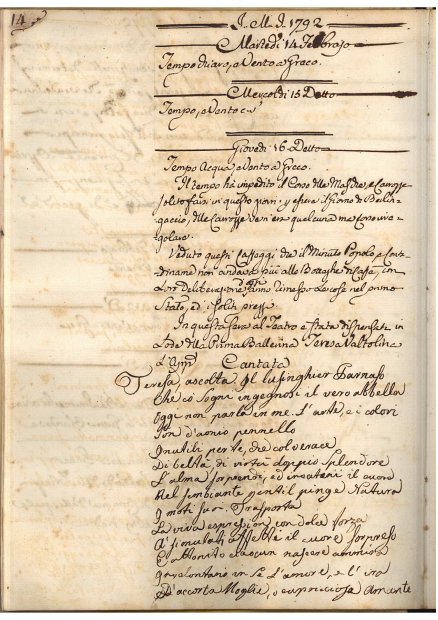 14
J. M. J. 1792
Martedi 14 Febbrajo
Tempo Chiaro, e Vento a Greco.
Mercoldi 15 Detto
Tempo, e Vento
Giovedi 16 Detto
Tempo Acqua, e Vento a Greco.
Il tempo hà impedito il Corso delle Maschre, e Carozze
solito farsi in questi giorni, e essere il giorno di Berlin-
gaccio, delle Carozze ve n'era qualcuna ma con
golare.
Veduto questi Caffeggi che il Minuto Popolo, e Conta-
dinanze non andava più alle Botteghe di Caffè, in
Lor Deliberazione hanno rimesso le cose nel primo
Stato, ed i soliti prezzi.
In questa sera al Teatro è stata dispensata in
Lode della Prima Ballerina Teresa Valtolina
Cantata
Teresa, ascolta. Il lusinghier Parnaso
Che co' sogni ingegnosi il vero abbella
Oggi non parla in me. L'arte, e i colori
Son d'aonio pennello
Inutili per te, che col verace
Di beltà, di virtù doppio splendore
L'alma sorprende, ed incateni il cuore
Nel sembiante gentil pinge Natura
I moti suoi. Trasporta
La viva espression con dolce forza
A' simulati affetti il cuore sorpreso
E attonito ciascun nascere ammira
Involontario in se l'amore, e l'ira
D'accorta Moglie, o capricciosa Amante